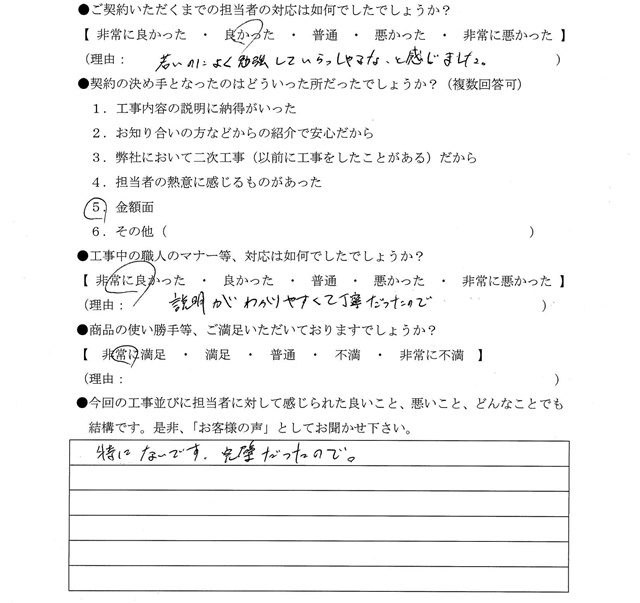 ●ご契約いただくまでの担当者の対応は如何でしたでしょうか？
【 非常に良かった ・ 良かった ・ 普通 ・ 悪かった ・ 非常に悪かった 】
（理由： 若いのによく勉強していらっしゃるな、と感じました。 ）
●契約の決め手となったのはどういった所だったでしょうか？（複数回答可）
１．工事内容の説明に納得がいった
２．お知り合いの方などからの紹介で安心だから
３．弊社において二次工事（以前に工事をしたことがある）だから
４．担当者の熱意に感じるものがあった
５．金額面
６．その他（ ）
●工事中の職人のマナー等、対応は如何でしたでしょうか？
【 非常に良かった ・ 良かった ・ 普通 ・ 悪かった ・ 非常に悪かった 】
（理由： 説明がわかりやすくて丁寧だったので ）
●商品の使い勝手等、ご満足いただいておりますでしょうか？
【 非常に満足 ・ 満足 ・ 普通 ・ 不満 ・ 非常に不満 】
（理由： ）
●今回の工事並びに担当者に対して感じられた良いこと、悪いこと、どんなことでも
結構です。是非、「お客様の声」としてお聞かせ下さい。
特にないです、完璧だったので。